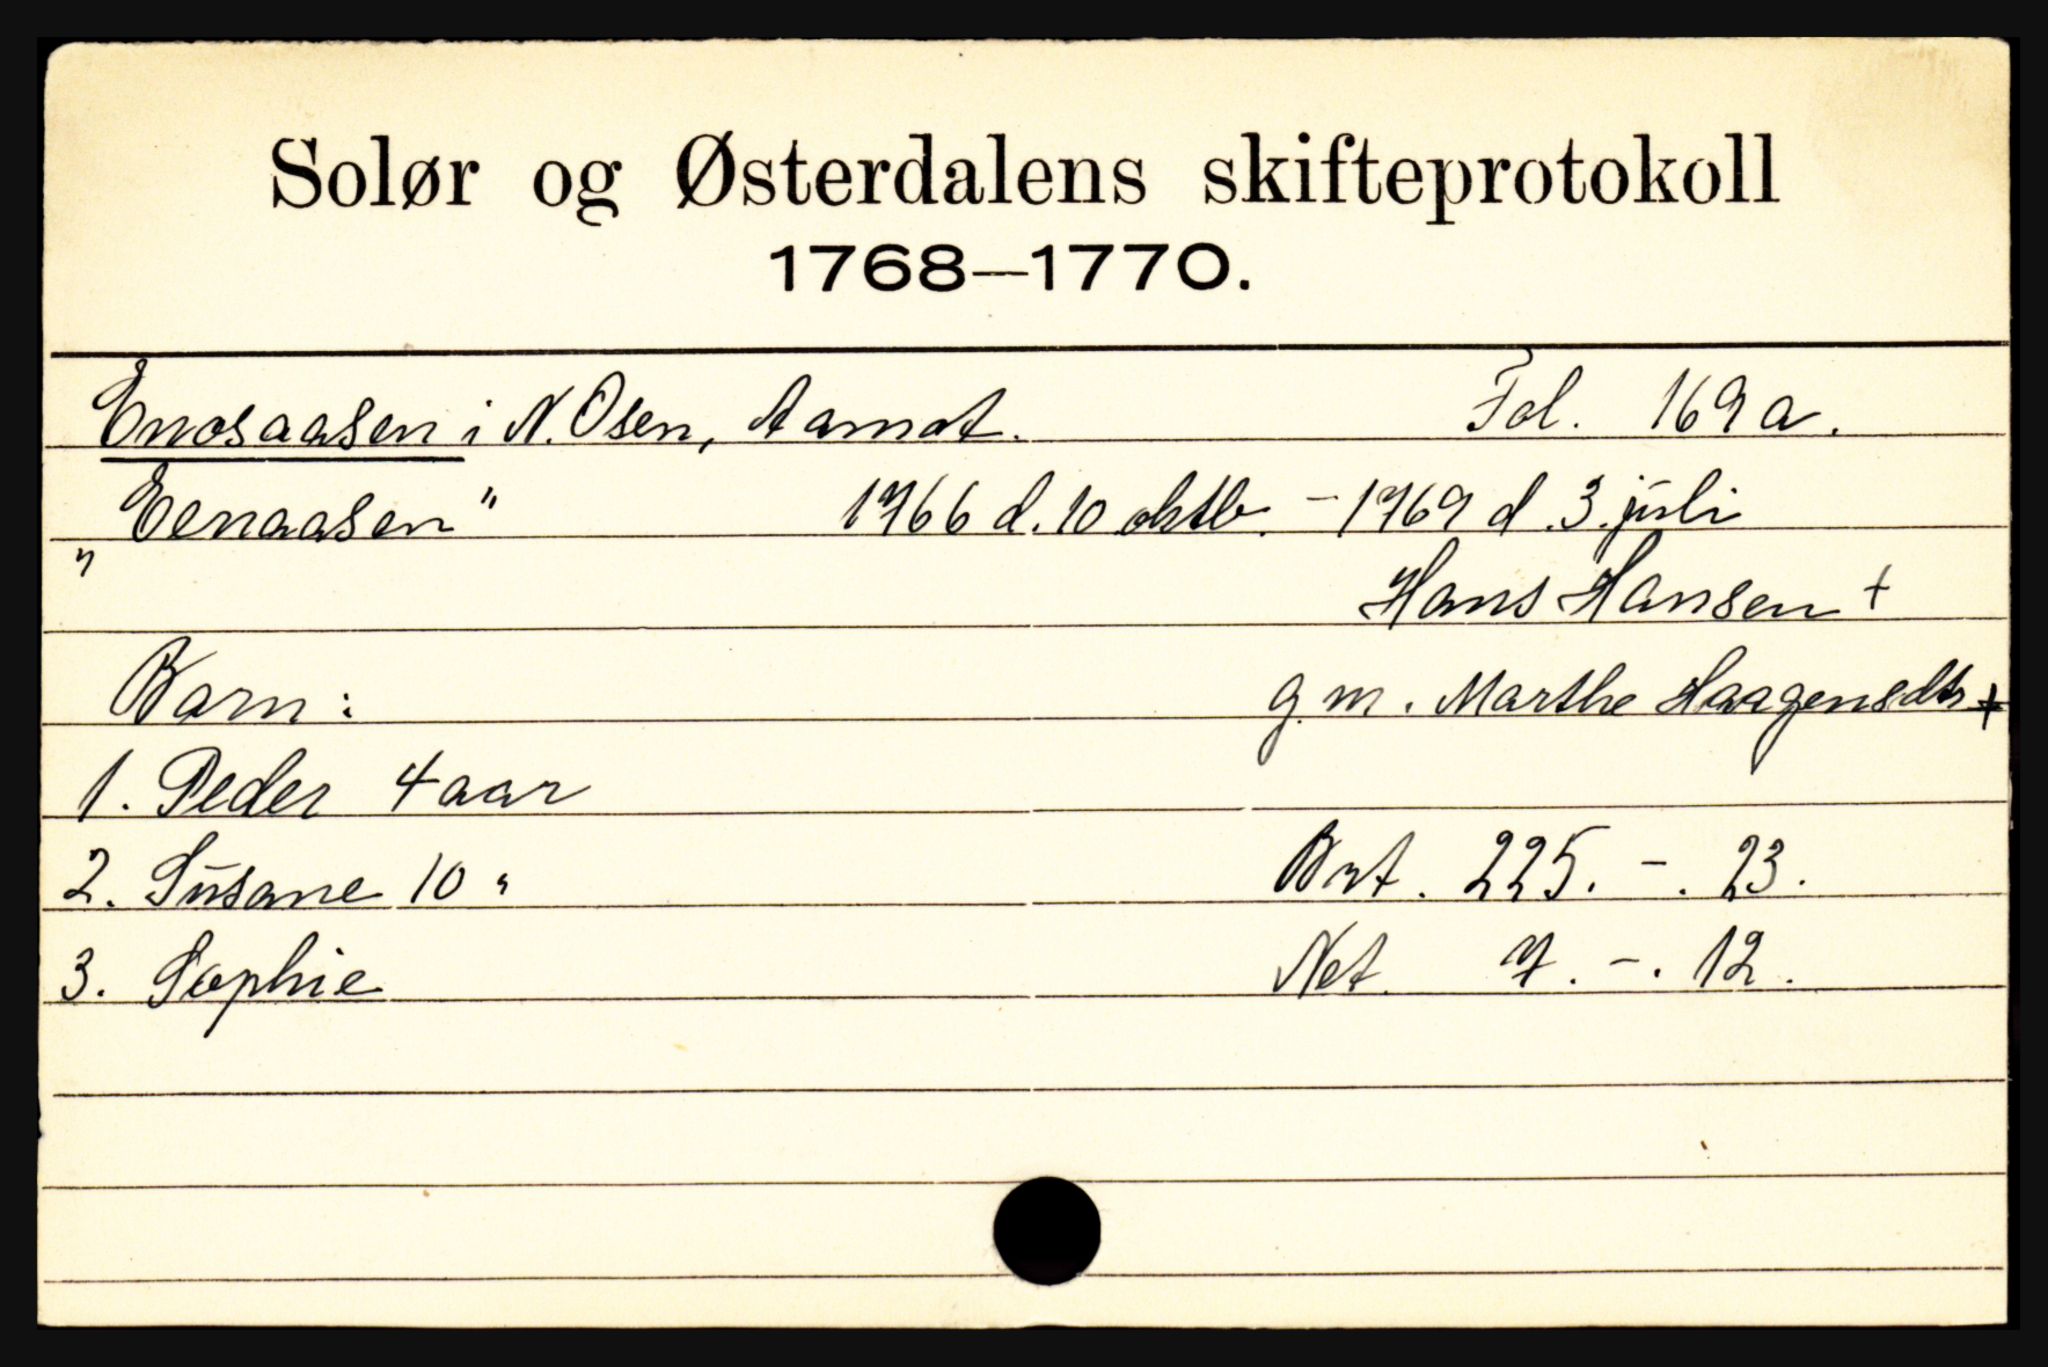 Solør og Østerdalens skifteprotokoll
1768—1770.
Enosaasen i N. Osen, Aamot. Fol. 169 a.
„Eenaasen" 1766 d. 10 oktb. - 1769 d. 3. juli
Hans Hansen +
Barn: g. m. Marthe Haagensdtr +
1. Peder 4 aar
2. Susane 10 " Brt. 225. -. 23.
3. Sophie Net. 7. -. 12.